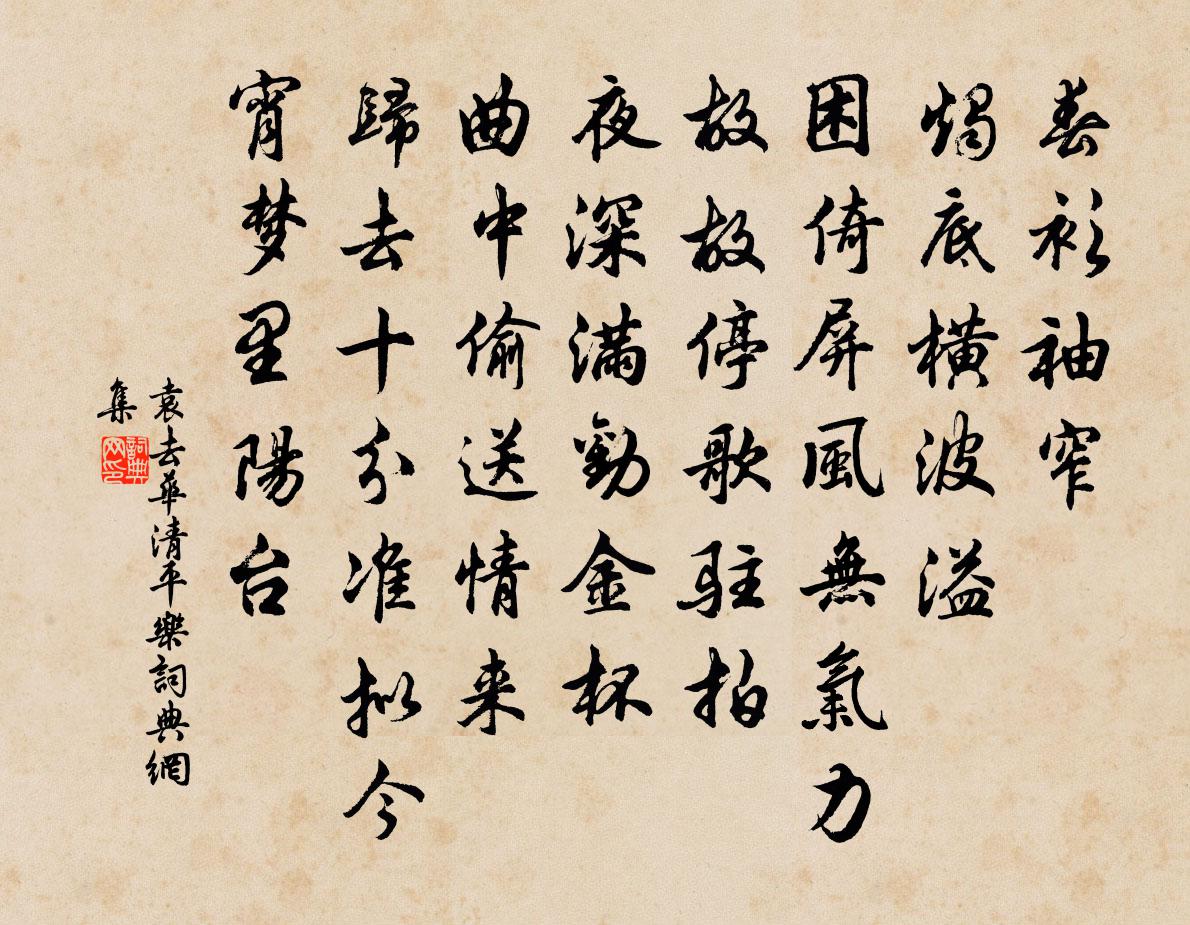 春衫袖窄
燭底橫波溢
困倚屏風無氣力
故故停歌駐拍
夜深滿勸金杯
曲中偷送情来
歸去十分准拟今
宵梦里陽台
袁去華清平樂詞典網
集
詞典網印